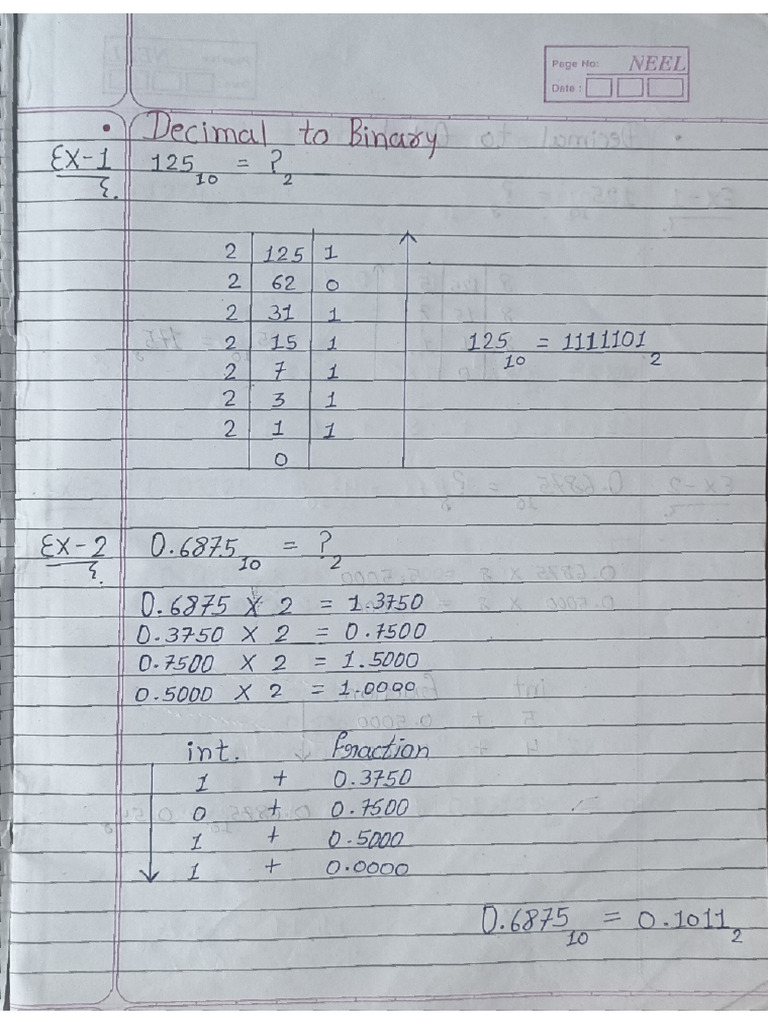 Page No: NEEL
Date:
• Decimal to Binary
Ex-1 125₁₀ = ?₂
2 | 125 | 1
2 | 62 | 0
2 | 31 | 1
2 | 15 | 1 125₁₀ = 1111101₂
2 | 7 | 1
2 | 3 | 1
2 | 1 | 1
0
Ex-2 0.6875₁₀ = ?₂
0.6875 X 2 = 1.3750
0.3750 X 2 = 0.7500
0.7500 X 2 = 1.5000
0.5000 X 2 = 1.0000
int. Fraction
1 + 0.3750
0 + 0.7500
1 + 0.5000
1 + 0.0000
0.6875₁₀ = 0.1011₂